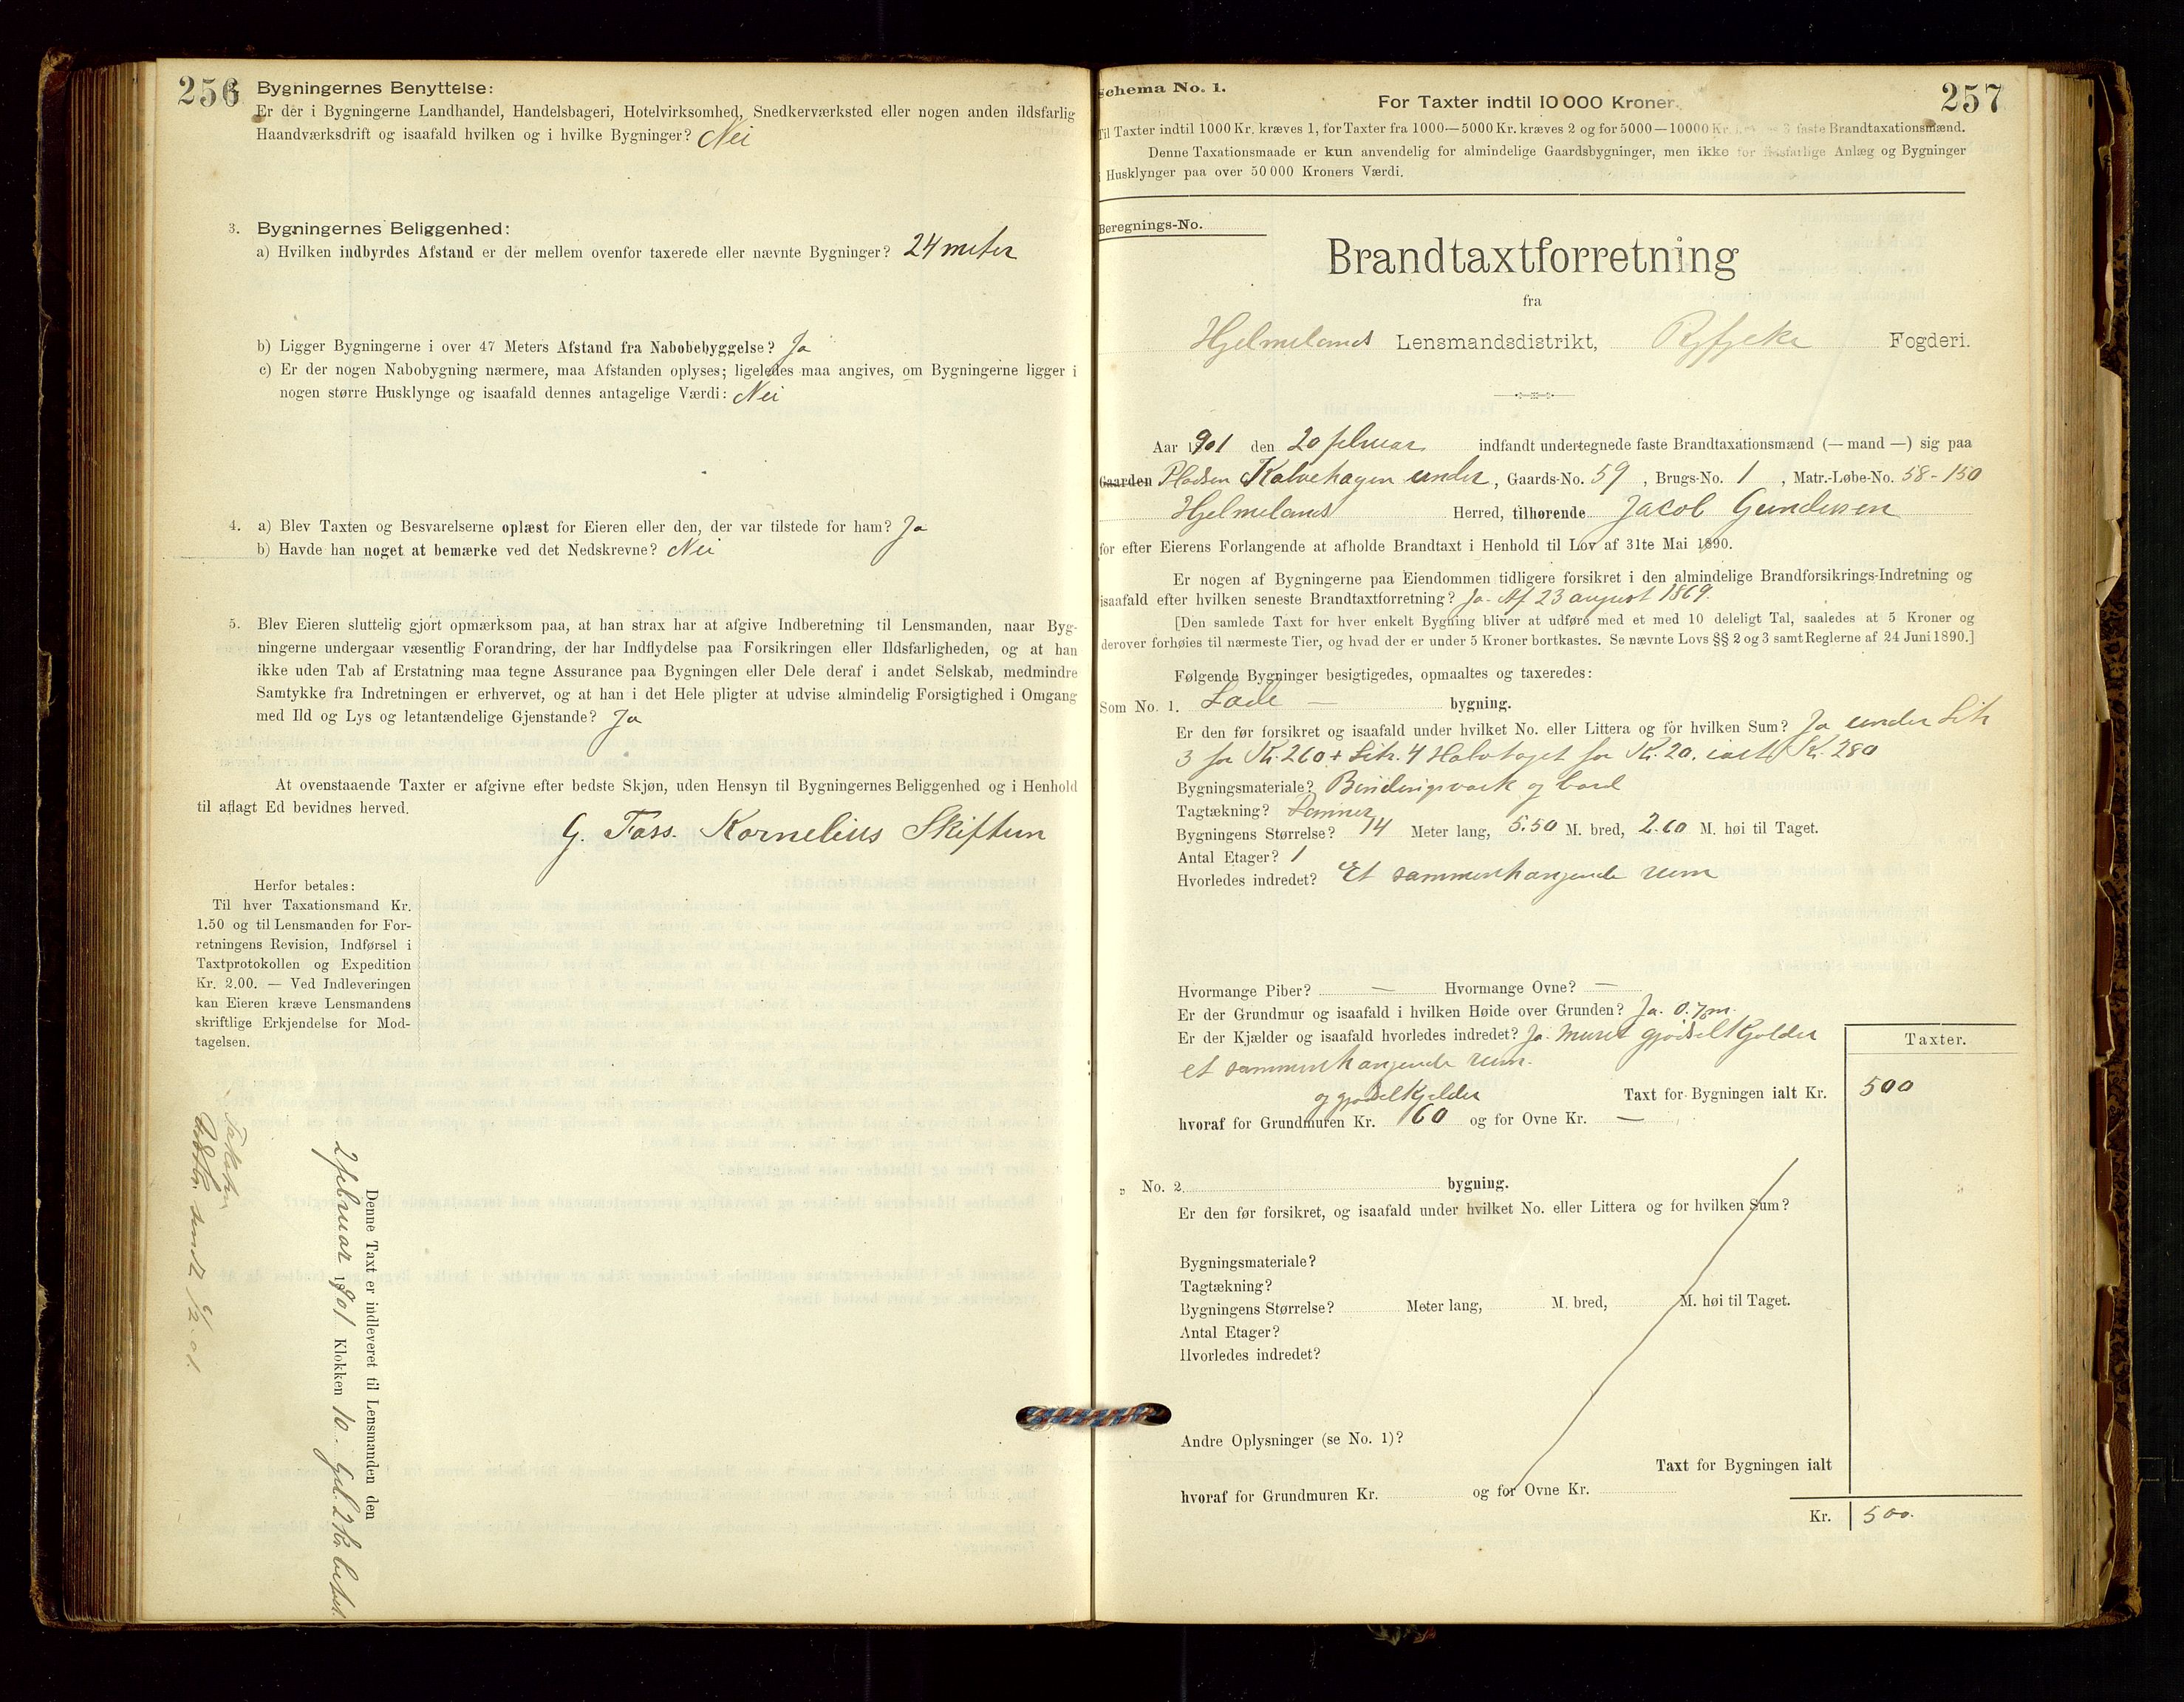 256
Bygningernes Benyttelse:
Er der i Bygningerne Landhandel, Handelsbageri, Hotelvirksomhed, Snedkerværksted eller nogen anden ildsfarlig
Haandværksdrift og isaafald hvilken og i hvilke Bygninger? Nei
3. Bygningernes Beliggenhed:
a) Hvilken indbyrdes Afstand er der mellem ovenfor taxerede eller nævnte Bygninger? 24 meter
b) Ligger Bygningerne i over 47 Meters Afstand fra Nabobebyggelse? Ja
c) Er der nogen Nabobygning nærmere, maa Afstanden oplyses; ligeledes maa angives, om Bygningerne ligger i
nogen større Husklynge og isaafald dennes antagelige Værdi: Nei
4. a) Blev Taxten og Besvarelserne oplæst for Eieren eller den, der var tilstede for ham? Ja
b) Havde han noget at bemærke ved det Nedskrevne? Nei
5. Blev Eieren sluttelig gjort opmærksom paa, at han strax har at afgive Indberetning til Lensmanden, naar Byg-
ningerne undergaar væsentlig Forandring, der har Indflydelse paa Forsikringen eller Ildsfarligheden, og at han
ikke uden Tab af Erstatning maa tegne Assurance paa Bygningen eller Dele deraf i andet Selskab, medmindre
Samtykke fra Indretningen er erhvervet, og at han i det Hele pligter at udvise almindelig Forsigtighed i Omgang
med Ild og Lys og letantændelige Gjenstande? Ja
At ovenstaaende Taxter er afgivne efter bedste Skjøn, uden Hensyn til Bygningernes Beliggenhed og i Henhold
til aflagt Ed bevidnes herved.
G. Foss. Kornelius Skiftun
Herfor betales:
Til hver Taxationsmand Kr.
1.50 og til Lensmanden for For-
retningens Revision, Indførsel i
Taxtprotokollen og Expedition
Kr. 2.00. — Ved Indleveringen
kan Eieren kræve Lensmandens
skriftlige Erkjendelse for Mod-
tagelsen.
Denne Taxt er indleveret til Lensmanden den
2 februar 1901 Klokken 10 - 2 Kr. betalt.
sendt
257
Schema No. 1.
For Taxter indtil 10 000 Kroner.
Til Taxter indtil 1000 Kr. kræves 1, for Taxter fra 1000—5000 Kr. kræves 2 og for 5000—10000 Kr. kræves 3 faste Brandtaxationsmænd.
Denne Taxationsmaade er kun anvendelig for almindelige Gaardsbygninger, men ikke for ildsfarlige Anlæg og Bygninger
i Husklynger paa over 50 000 Kroners Værdi.
Beregnings-No.
Brandtaxtforretning
fra
Hjelmelands Lensmandsdistrikt, Ryfylke Fogderi.
Aar 1901 den 20 februar indfandt undertegnede faste Brandtaxationsmænd (— mand —) sig paa
Gaarden Pladsen Kalvehagen under, Gaards-No. 59, Brugs-No. 1, Matr.-Løbe-No. 58-150
Hjelmelands Herred, tilhørende Jacob Gundersen
for efter Eierens Forlangende at afholde Brandtaxt i Henhold til Lov af 31te Mai 1890.
Er nogen af Bygningerne paa Eiendommen tidligere forsikret i den almindelige Brandforsikrings-Indretning og
isaafald efter hvilken seneste Brandtaxtforretning? Ja. Af 23 august 1869.
[Den samlede Taxt for hver enkelt Bygning bliver at udføre med et med 10 deleligt Tal, saaledes at 5 Kroner og
derover forhøies til nærmeste Tier, og hvad der er under 5 Kroner bortkastes. Se nævnte Lovs §§ 2 og 3 samt Reglerne af 24 Juni 1890.]
Følgende Bygninger besigtigedes, opmaaltes og taxeredes:
Som No. 1. Lade — bygning.
Er den før forsikret og isaafald under hvilket No. eller Littera og for hvilken Sum? Ja under Litr
3 for Kr. 260 + Litr. 4 Halvtaget for Kr. 20. ialt Kr. 280
Bygningsmateriale? Bindingsværk og bord
Tagtækning?
Bygningens Størrelse? 14 Meter lang, 5.50 M. bred, 2.60 M. høi til Taget.
Antal Etager? 1
Hvorledes indredet? Et sammenhængende rum
Hvormange Piber? — Hvormange Ovne? —
Er der Grundmur og isaafald i hvilken Høide over Grunden? Ja. 0.7 m.
Er der Kjælder og isaafald hvorledes indredet? Ja. Muret gjødselkjælder
et sammenhængende rum.
Taxter.
og gjødselkjelder
Taxt for Bygningen ialt Kr. 500
hvoraf for Grundmuren Kr. 60 og for Ovne Kr. —
" No. 2. bygning.
Er den før forsikret, og isaafald under hvilket No. eller Littera og for hvilken Sum?
Bygningsmateriale?
Tagtækning?
Bygningens Størrelse? Meter lang, M. bred, M. høi til Taget.
Antal Etager?
Hvorledes indredet?
Andre Oplysninger (se No. 1)?
Taxt for Bygningen ialt
hvoraf for Grundmuren Kr. og for Ovne Kr.
Kr. 500.